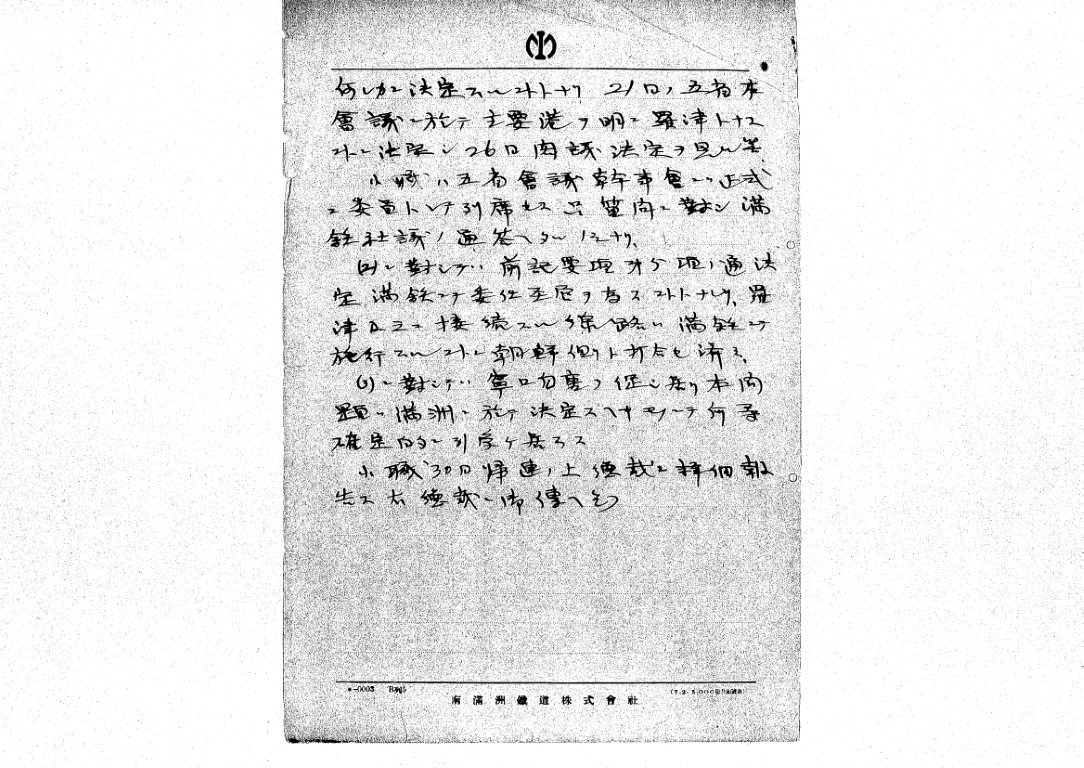 何レカニ決定スルコトトナリ 21日ノ五省本
會議ニ於テ主要港ヲ明ニ羅津トナス
コトニ決定シ26日閣議決定ヲ見ル筈
小職ハ五省會議幹事會ニハ正式
ニ委員トシテ列席セス 質問ニ對シ満
鉄社議ノ通答ヘタルノミナリ、
(2)ニ對シテハ前記要項 ノ通決
定満鉄ニテ委任 ヲ為スコトトナリ、羅
津及之ニ接続スル線路ハ満鉄ニテ
施行スルコトニ朝鮮側ト打合セ済ミ、
ニ對シテハ ヲ促シ居リ本問
題ハ満洲ニ於テ決定スヘキモノニテ何等
確定的ニ引受ケ居ラス
小職30日帰連ノ上總裁ニ詳細報
告ス右總裁ニ御傳ヘ乞フ
南滿洲鐵道株式會社